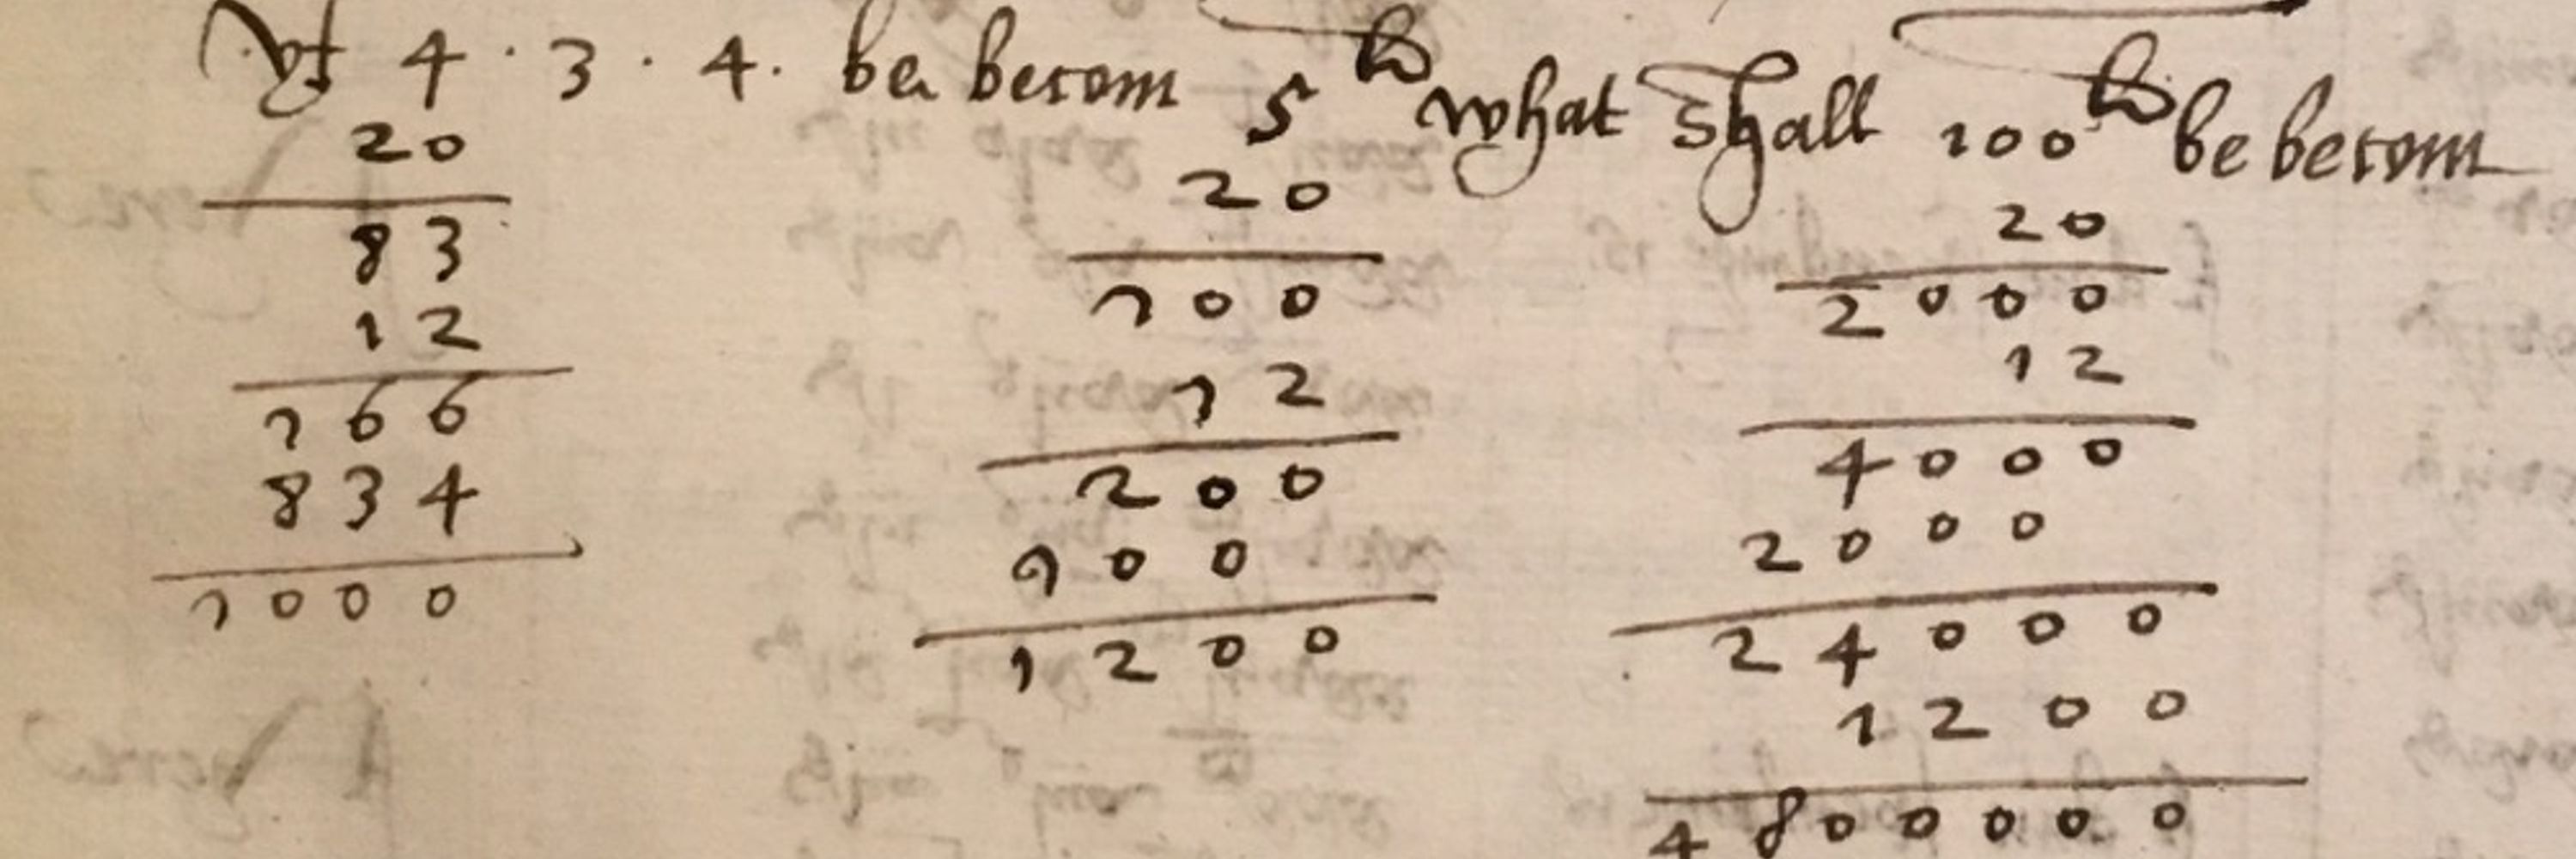 Yf 4 · 3 · 4. be becom 5 lb what shall 100 lb be becom
20
83
12
166
834
1000
20
100
12
200
100
1200
20
2000
12
4000
2000
24000
1200
4800000